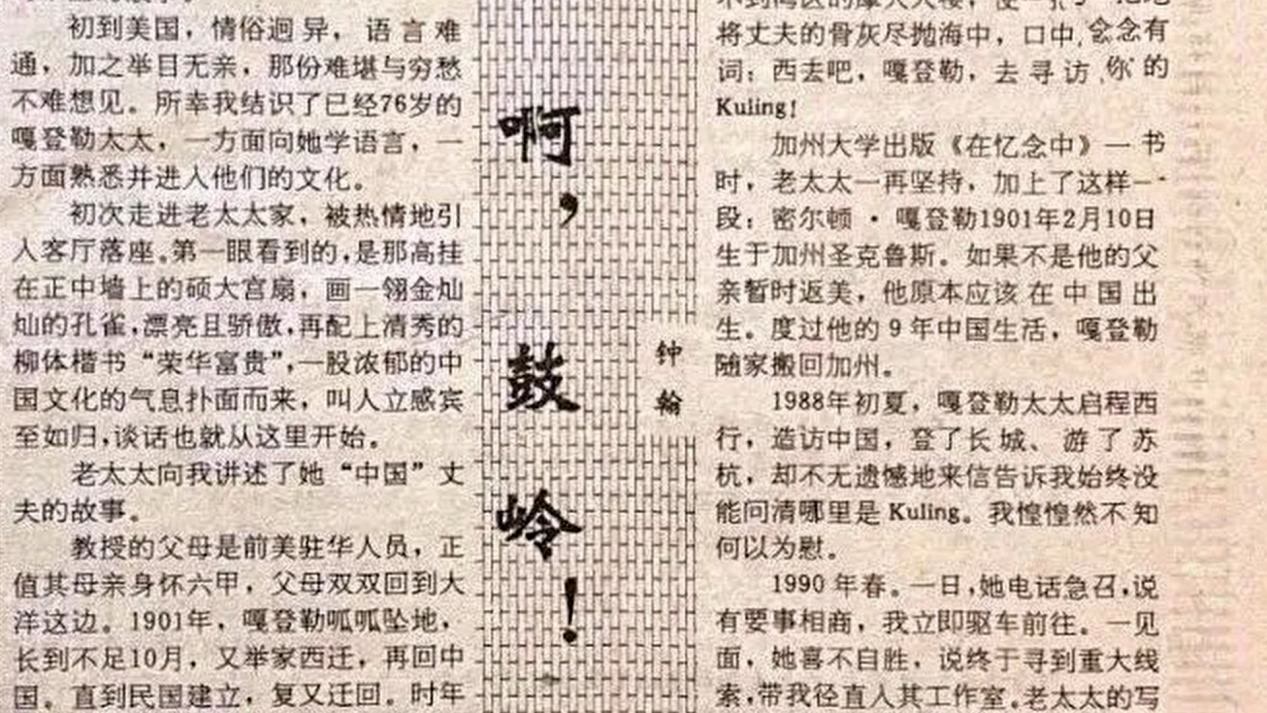 初到美国，情俗迥异，语言难
通，加之举目无亲，那份难堪与穷愁
不难想见。所幸我结识了已经76岁的
嘎登勒太太，一方面向她学语言，一
方面熟悉并进入他们的文化。
初次走进老太太家，被热情地引
入客厅落座。第一眼看到的，是那高挂
在正中墙上的硕大宫扇，画一翎金灿
灿的孔雀，漂亮且骄傲，再配上清秀的
柳体楷书“荣华富贵”，一股浓郁的中
国文化的气息扑面而来，叫人立感宾
至如归，谈话也就从这里开始。
老太太向我讲述了她“中国”丈
夫的故事。
教授的父母是前美驻华人员，正
值其母亲身怀六甲，父母双双回到大
洋这边。1901年，嘎登勒呱呱坠地，
长到不足10月，又举家西迁，再回中
国。直到民国建立，复又迁回。时年
啊，鼓岭！
钟翰
将丈夫的骨灰尽抛海中，口中念念有
词：西去吧，嘎登勒，去寻访你的
Kuling！
加州大学出版《在忆念中》一书
时，老太太一再坚持，加上了这样一
段：密尔顿·嘎登勒1901年2月10日
生于加州圣克鲁斯。如果不是他的父
亲暂时返美，他原本应该在中国出
生。度过他的9年中国生活，嘎登勒
随家搬回加州。
1988年初夏，嘎登勒太太启程西
行，造访中国，登了长城、游了苏
杭，却不无遗憾地来信告诉我始终没
能问清哪里是Kuling。我惶惶然不知
何以为慰。
1990年春。一日，她电话急召，说
有要事相商，我立即驱车前往。一见
面，她喜不自胜，说终于寻到重大线
索，带我径直入其工作室。老太太的写